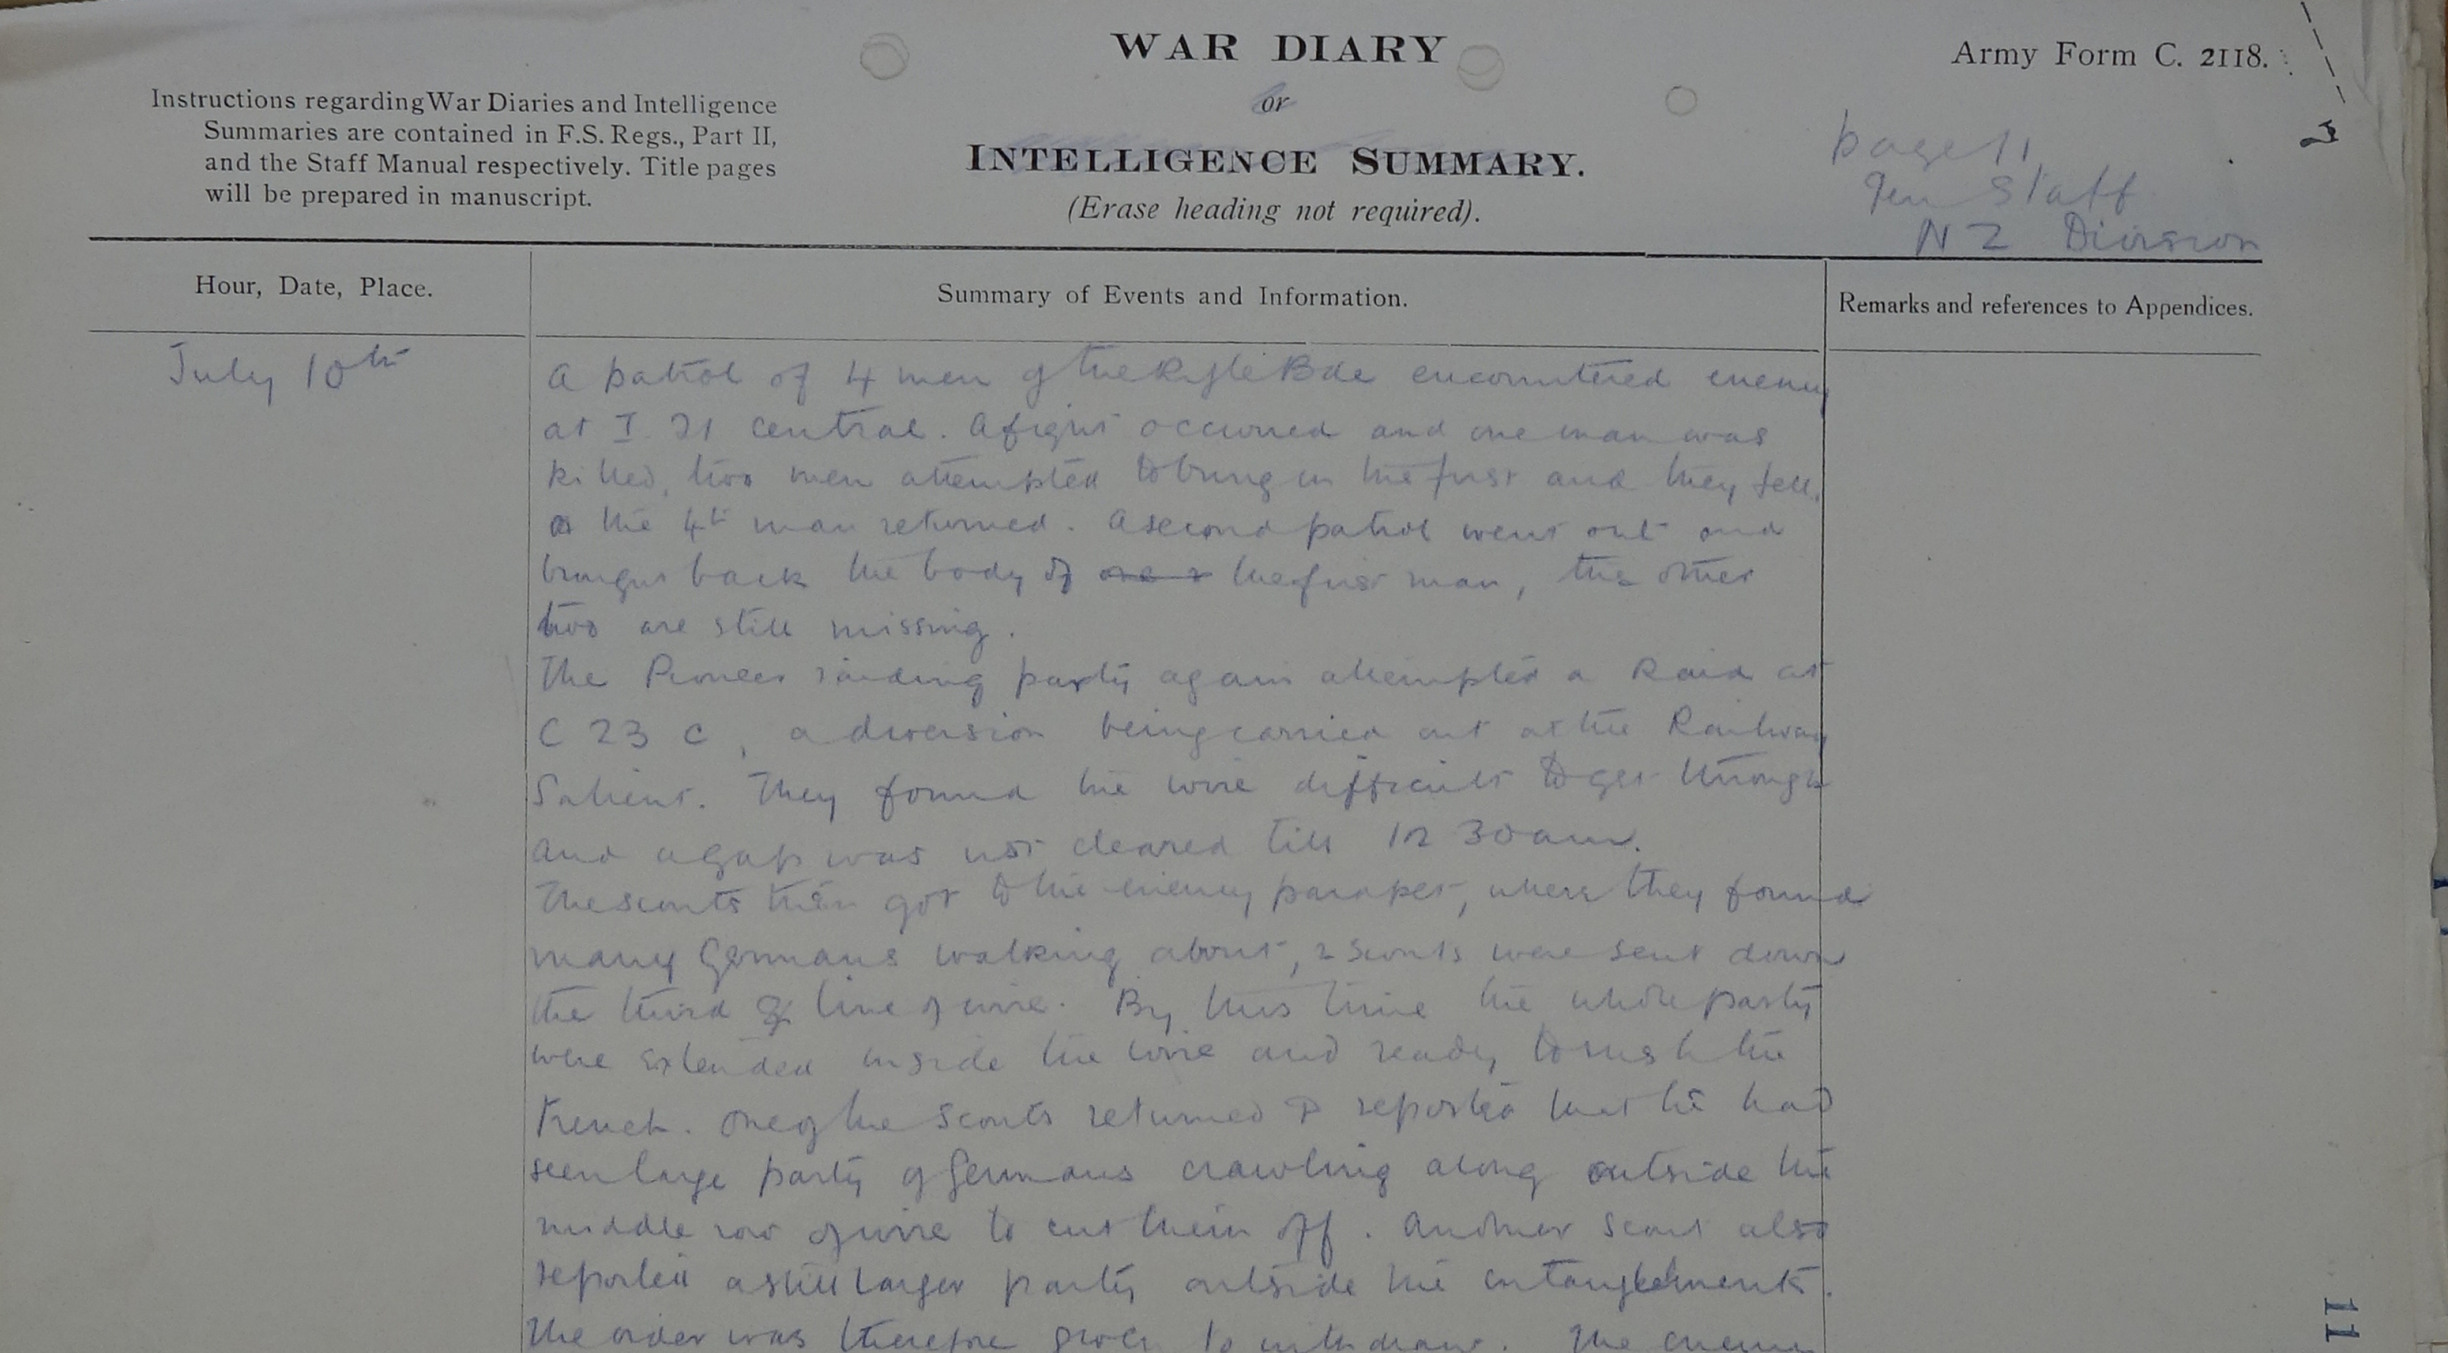 WAR DIARY
or
INTELLIGENCE SUMMARY.
(Erase heading not required).
Army Form C. 2118.
Instructions regarding War Diaries and Intelligence
Summaries are contained in F.S. Regs., Part II,
and the Staff Manual respectively. Title pages
will be prepared in manuscript.
page 11
Gen Staff
N Z Division
Hour, Date, Place.
Summary of Events and Information.
Remarks and references to Appendices.
July 10th
A patrol of 4 men of the Rifle Bde encountered enemy
at I 21 central. A fight occurred and one man was
killed, two men attempted to bring in the first and they fell,
the 4th man returned. A second patrol went out and
brought back the body of the first man, the other
two are still missing.
The Pioneer raiding party again attempted a Raid at
C 23 C, a diversion being carried out at the Railway
Salient. They found the wire difficult to get through
and a gap was not cleared till 12 30 am.
The scouts then got to the enemy parapet, where they found
many Germans walking about, 2 scouts were sent down
the third line of wire. By this time the whole party
were extended inside the wire and ready to rush the
trench. One of the scouts returned & reported that he had
seen large party of Germans crawling along outside the
middle row of wire to cut them off. Another scout also
reported a still larger party outside the entanglements.
The order was therefore given to withdraw. The enemy
11